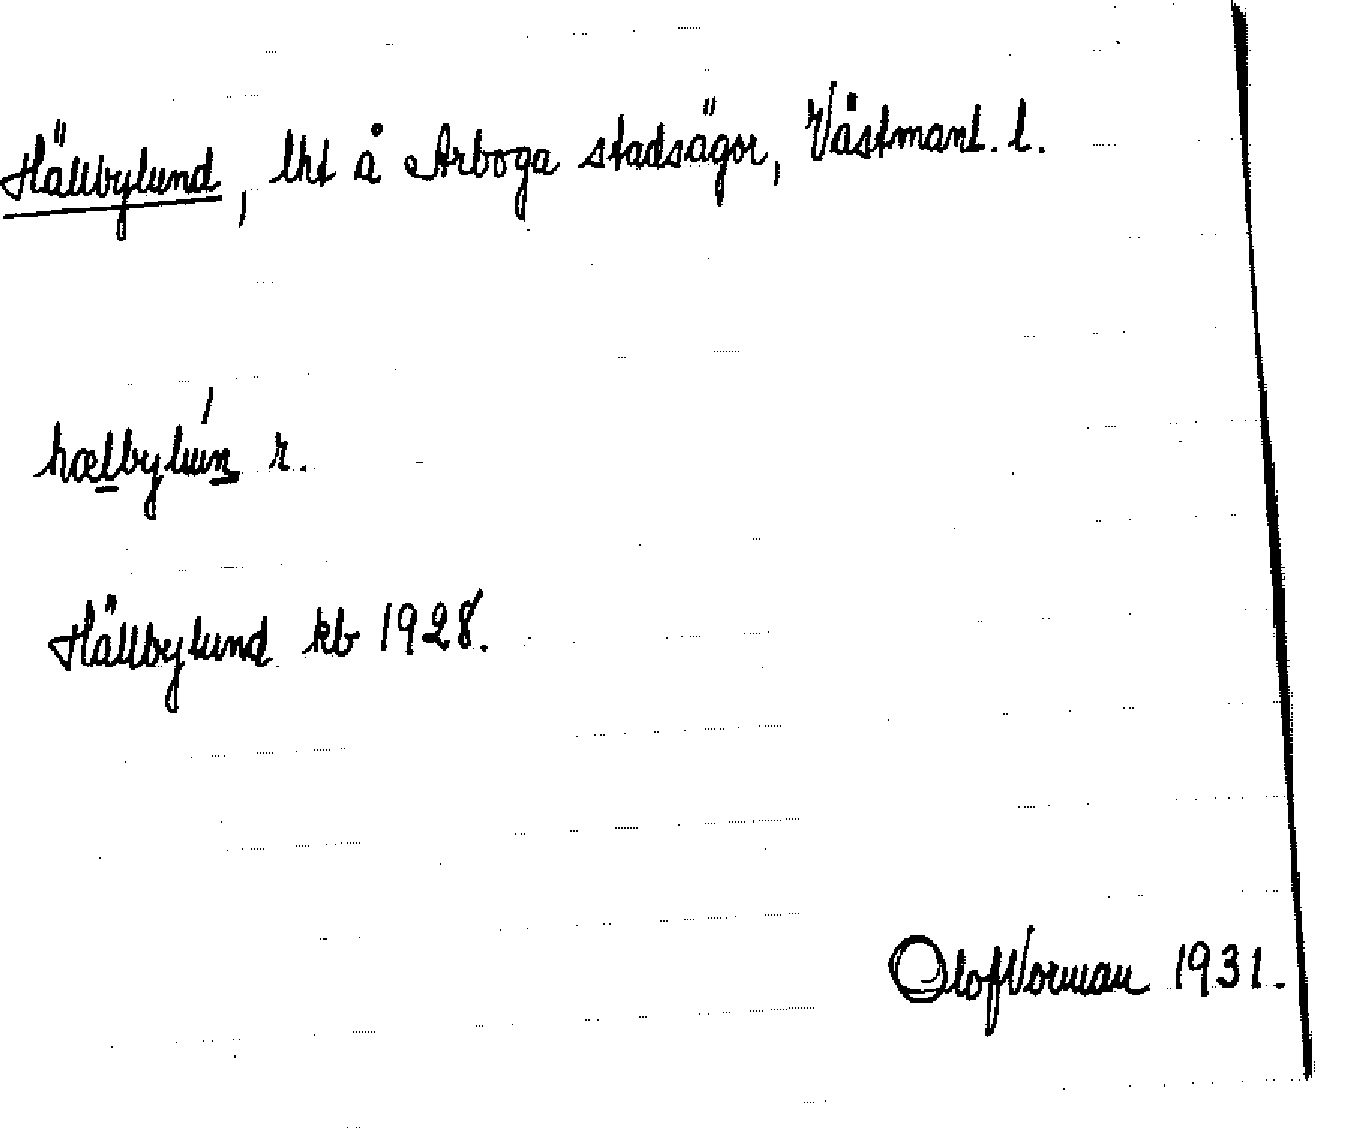 Hällbylund, lht å Arboga stadsägor, Västmanl. l.
hælbylún r.
Hällbylund kb 1928.
Olof Vorman 1931.